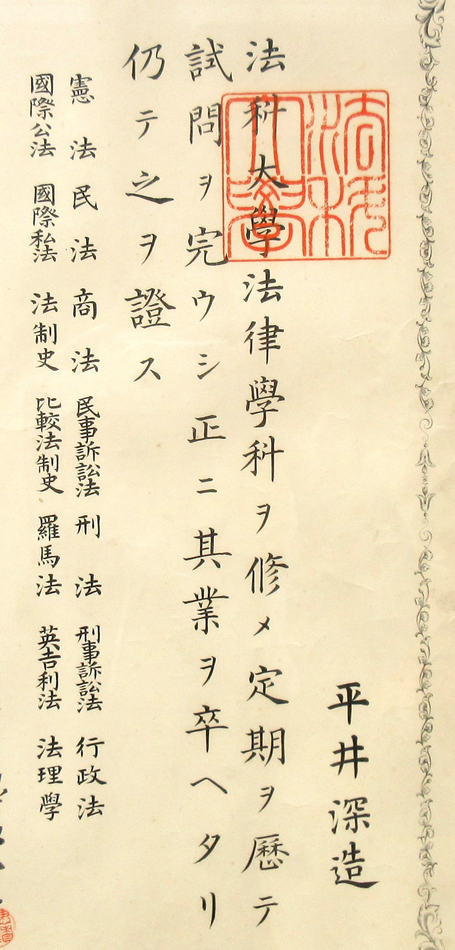 平井深造
法科大學法律學科ヲ修メ定期ヲ歴テ
試問ヲ完ウシ正ニ其業ヲ卒ヘタリ
仍テ之ヲ證ス
憲法 民法 商法 民事訴訟法 刑法 刑事訴訟法 行政法
國際公法 國際私法 法制史 比較法制史 羅馬法 英吉利法 法理學
法科大學